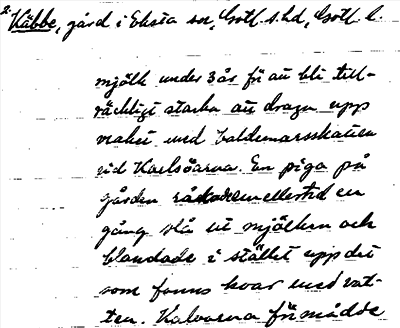 2. Käbbe, gård i Eksta sn, Gotl. s. hd, Gotl. l.
mjölk under 3 år för att bli till-
räckligt starka att draga upp
vraket med Valdemarsskatten
vid Karlsöarna. En piga på
gården råkade emellertid en
gång slå ut mjölken och
blandade i stället upp det
som fanns kvar med vat-
ten. Kalvarna förmådde